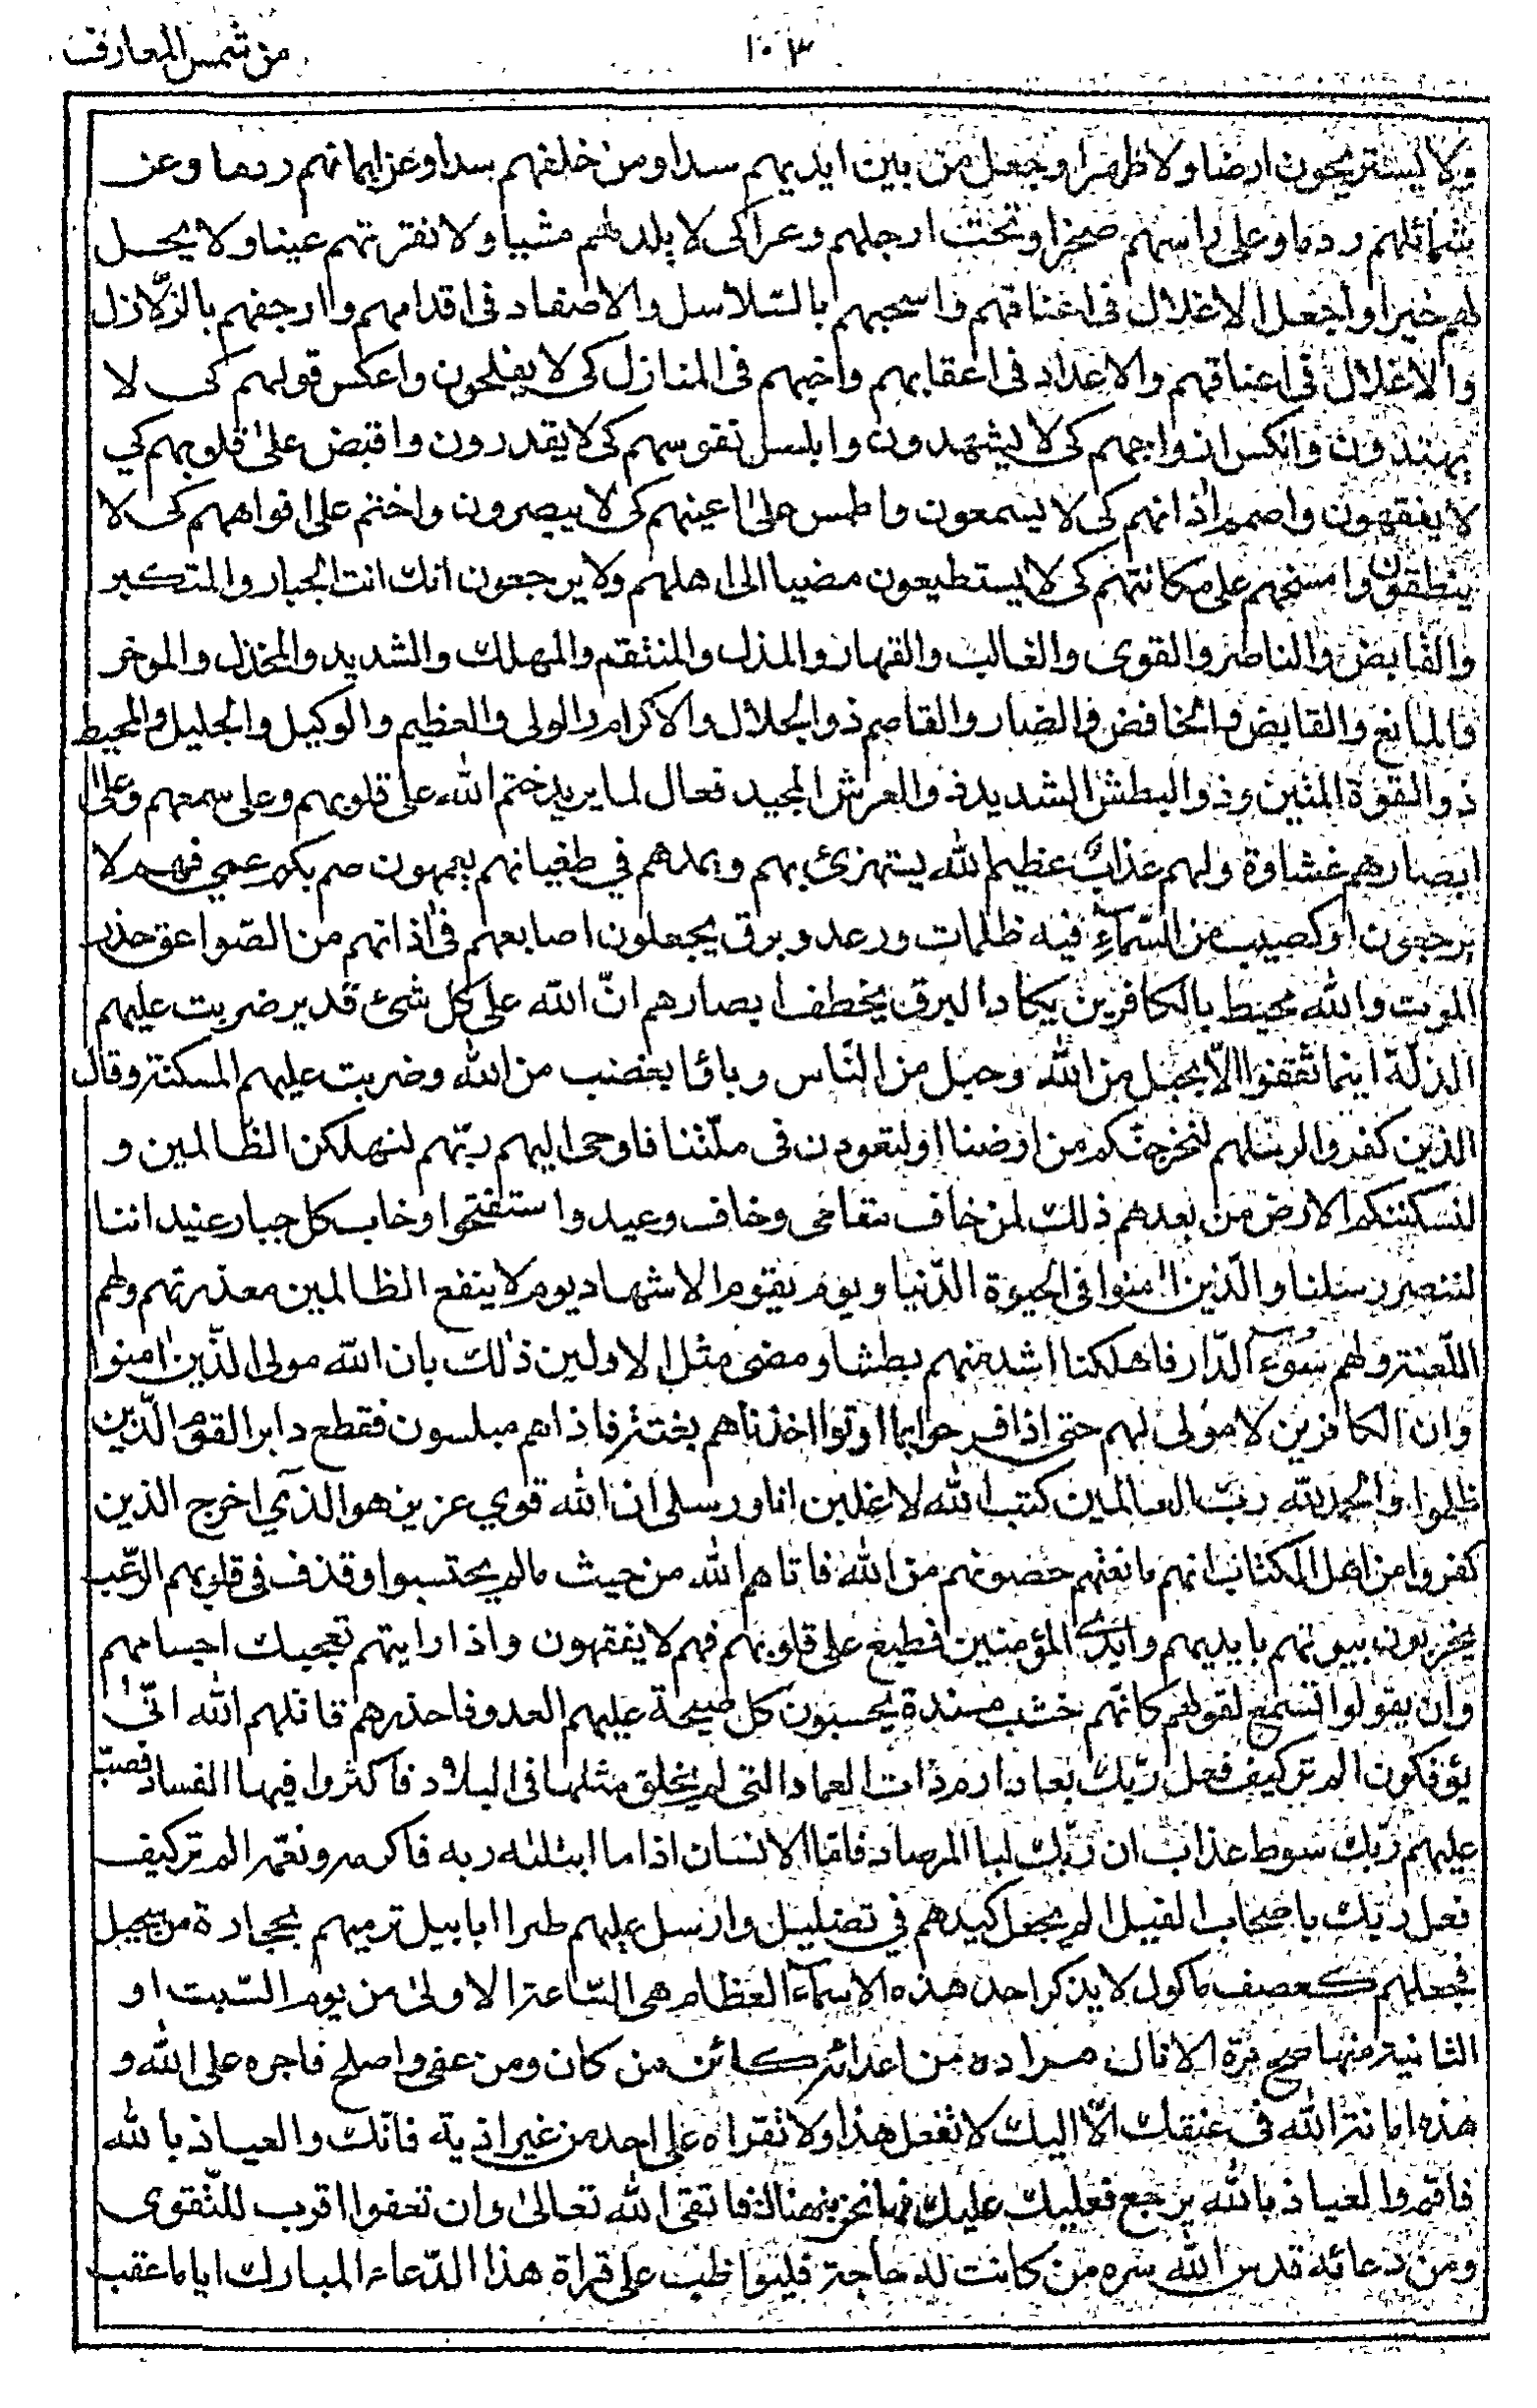 من شمس المعارف
١٠٣
ولا يستريحون ارضا ولا ظهرا وجعل من بين ايديهم سدا ومن خلفهم سدا وعن ايمانهم ردما وعن
شمائلهم ردما وعلى راسهم صخرا وتحت ارجلهم وعرا كى لا يلد لهم مشيا ولا تقر لهم عينا ولا يحل
لهم خيرا واجعل الاغلال فى اعناقهم واسحبهم بالسّلاسل والاصفاد فى اقدامهم واارجفهم بالزّلازل
والاغلال فى اعناقهم والاعداد فى اعقابهم واخبهم فى المنازل كى لا يفلحون واعكس قولهم كى لا
يهتدون وانكس ارواحهم كى لا يشهدون وابلس نفوسهم كى لا يقدرون واقبض على قلوبهم كي
لا يفقهون واصمم اٰذانهم كى لا يسمعون واطمس على اعينهم كى لا يبصرون واختم على افواههم كى لا
ينطقون وامسخهم على مكانتهم كى لا يستطيعون مضيا الى اهلهم ولا يرجعون انك انت الجبار والمتكبر
والقابض والناصر والقوى والغالب والقهار والمذل والمنتقم والمهلك والشديد والمخذل والموخر
والمانع والقابض والخافض والضار والقاصم ذوالجلال والاكرام والولى والعظيم والوكيل والجليل والمحيط
ذوالقوة المتين وذوالبطش الشديد والعرش المجيد فعال لما يريد ختم الله على قلوبهم وعلى سمعهم وعلىٰ
ابصارهم غشاوة ولهم عذاب عظيم الله يستهزئ بهم ويمدهم في طغيانهم يعمهون صم بكم عمي فهم لا
يرجعون او كصيب من السّماءِ فيه ظلمات ورعد وبرق يجعلون اصابعهم فى اٰذانهم من الصّواعق حذر
الموت والله محيط بالكافرين يكاد البرق يخطف ابصارهم انّ الله على كل شئ قدير ضربت عليهم
الذلّة اينما ثقفوا الّا بحبل من الله وحبل من النّاس وباؤا بغضب من الله وضربت عليهم المسكنة وقال
الذين كفروا لرسلهم لنخرجنّكم من ارضنا او لتعودن فى ملّتنا فاوحى اليهم ربّهم لنهلكن الظالمين و
لنسكننكم الارض من بعدهم ذلك لمن خاف مقامى وخاف وعيد واستفتحوا وخاب كل جبار عنيد اننا
لننصر رسلنا والّذين اٰمنوا فى الحيوة الدّنيا ويوم يقوم الاشهاد يوم لا ينفع الظالمين معذرتهم ولهم
اللّعنة ولهم سُوٓءُ الدّار فاهلكنا اشد منهم بطشا ومضى مثل الاولين ذلك بان الله مولى الّذين اٰمنوا
وان الكافرين لا مولى لهم حتى اذا فرحوا بما اوتوا اخذناهم بغتة فاذا هم مبلسون فقطع دابر القوم الّذين
ظلموا والحمد لله ربّ العالمين كتب الله لاغلبن انا ورسلى ان الله قوي عزيز هو الذي اخرج الذين
كفروا من اهل الكتاب انهم مانعتهم حصونهم من الله فاتاهم الله من حيث مالم يحتسبوا وقذف فى قلوبهم الرّعب
يخربون بيوتهم بايديهم وايدى المؤمنين فطبع على قلوبهم فهم لا يفقهون واذا رايتهم تعجبك اجسامهم
وان يقولوا تسمع لقولهم كانّهم خشب مسندة يحسبون كل صيحة عليهم العدو فاحذرهم قاتلهم الله انّىٰ
يؤفكون الم تر كيف فعل ربّك بعاد ارم ذات العماد التى لم يخلق مثلها فى البلاد فاكثروا فيها الفساد فصبّ
عليهم ربّك سوط عذاب ان ربّك لبا المرصاد فامّا الانسان اذا ما ابتلىٰه ربه فاكرمه ونعّمه الم تر كيف
فعل ربّك باصحاب الفيل الم يجعل كيدهم في تضليل وارسل عليهم طيرا ابابيل ترميهم بحجارة من سجيل
فجعلهم كعصف ماكول لا يذكر احد هذه الاسماء العظام هى السّاعة الاولى من يوم السّبت او
الثانية منها صح مرة الا نال مراده من اعدائه كائن من كان ومن عفى واصلح فاجره على الله و
هذه امانة الله فى عنقك الّا اليك لا تفعل هذا ولا تقراه على احد من غير اذية فانّك والعياذ بالله
والعياذ بالله يرجع فعليك عليك فاتقى الله تعالىٰ وان تعفوا اقرب للتّقوى
ومن دعائه قدس الله سره من كانت له حاجة فليواظب على قراة هذا الدّعاء المبارك اياما عقب